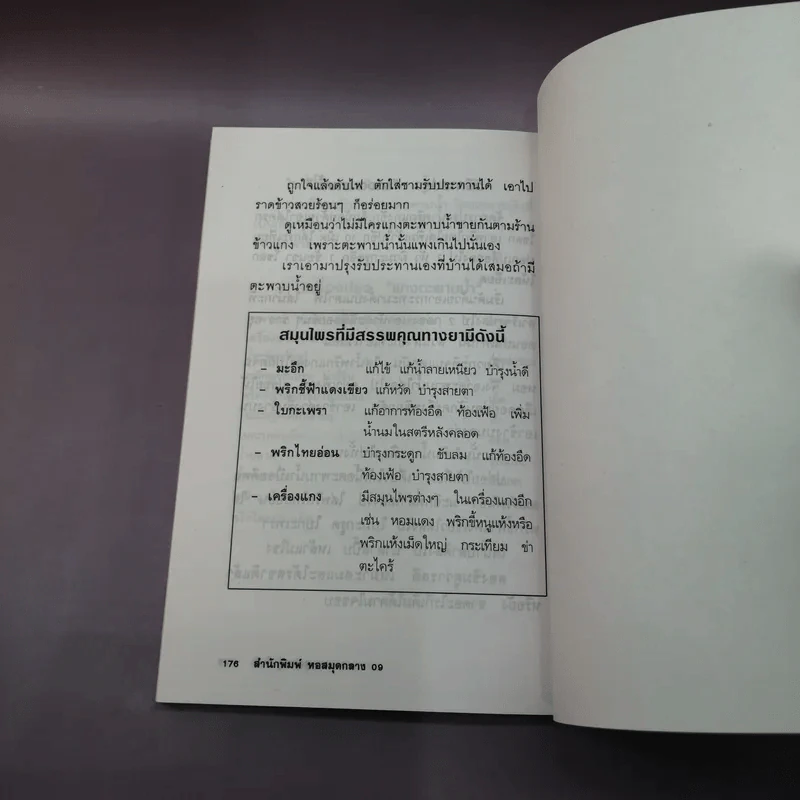 ถูกใจแล้วดับไฟ ตักใส่ชามรับประทานได้ เอาไป
ราดข้าวสวยร้อนๆ ก็อร่อยมาก
ดูเหมือนว่าไม่มีใครแกงตะพาบน้ำขายกันตามร้าน
ข้าวแกง เพราะตะพาบน้ำนั้นแพงเกินไปนั่นเอง
เราเอามาปรุงรับประทานเองที่บ้านได้เสมอถ้ามี
ตะพาบน้ำอยู่
สมุนไพรที่มีสรรพคุณทางยามีดังนี้
– มะอึก แก้ไข้ แก้น้ำลายเหนียว บำรุงน้ำดี
– พริกชี้ฟ้าแดงเขียว แก้หวัด บำรุงสายตา
– ใบกะเพรา แก้อาการท้องอืด ท้องเฟ้อ เพิ่ม
น้ำนมในสตรีหลังคลอด
– พริกไทยอ่อน บำรุงกระดูก ขับลม แก้ท้องอืด
ท้องเฟ้อ บำรุงสายตา
– เครื่องแกง มีสมุนไพรต่างๆ ในเครื่องแกงอีก
เช่น หอมแดง พริกขี้หนูแห้งหรือ
พริกแห้งเม็ดใหญ่ กระเทียม ข่า
ตะไคร้
176 สำนักพิมพ์ หอสมุดกลาง 09